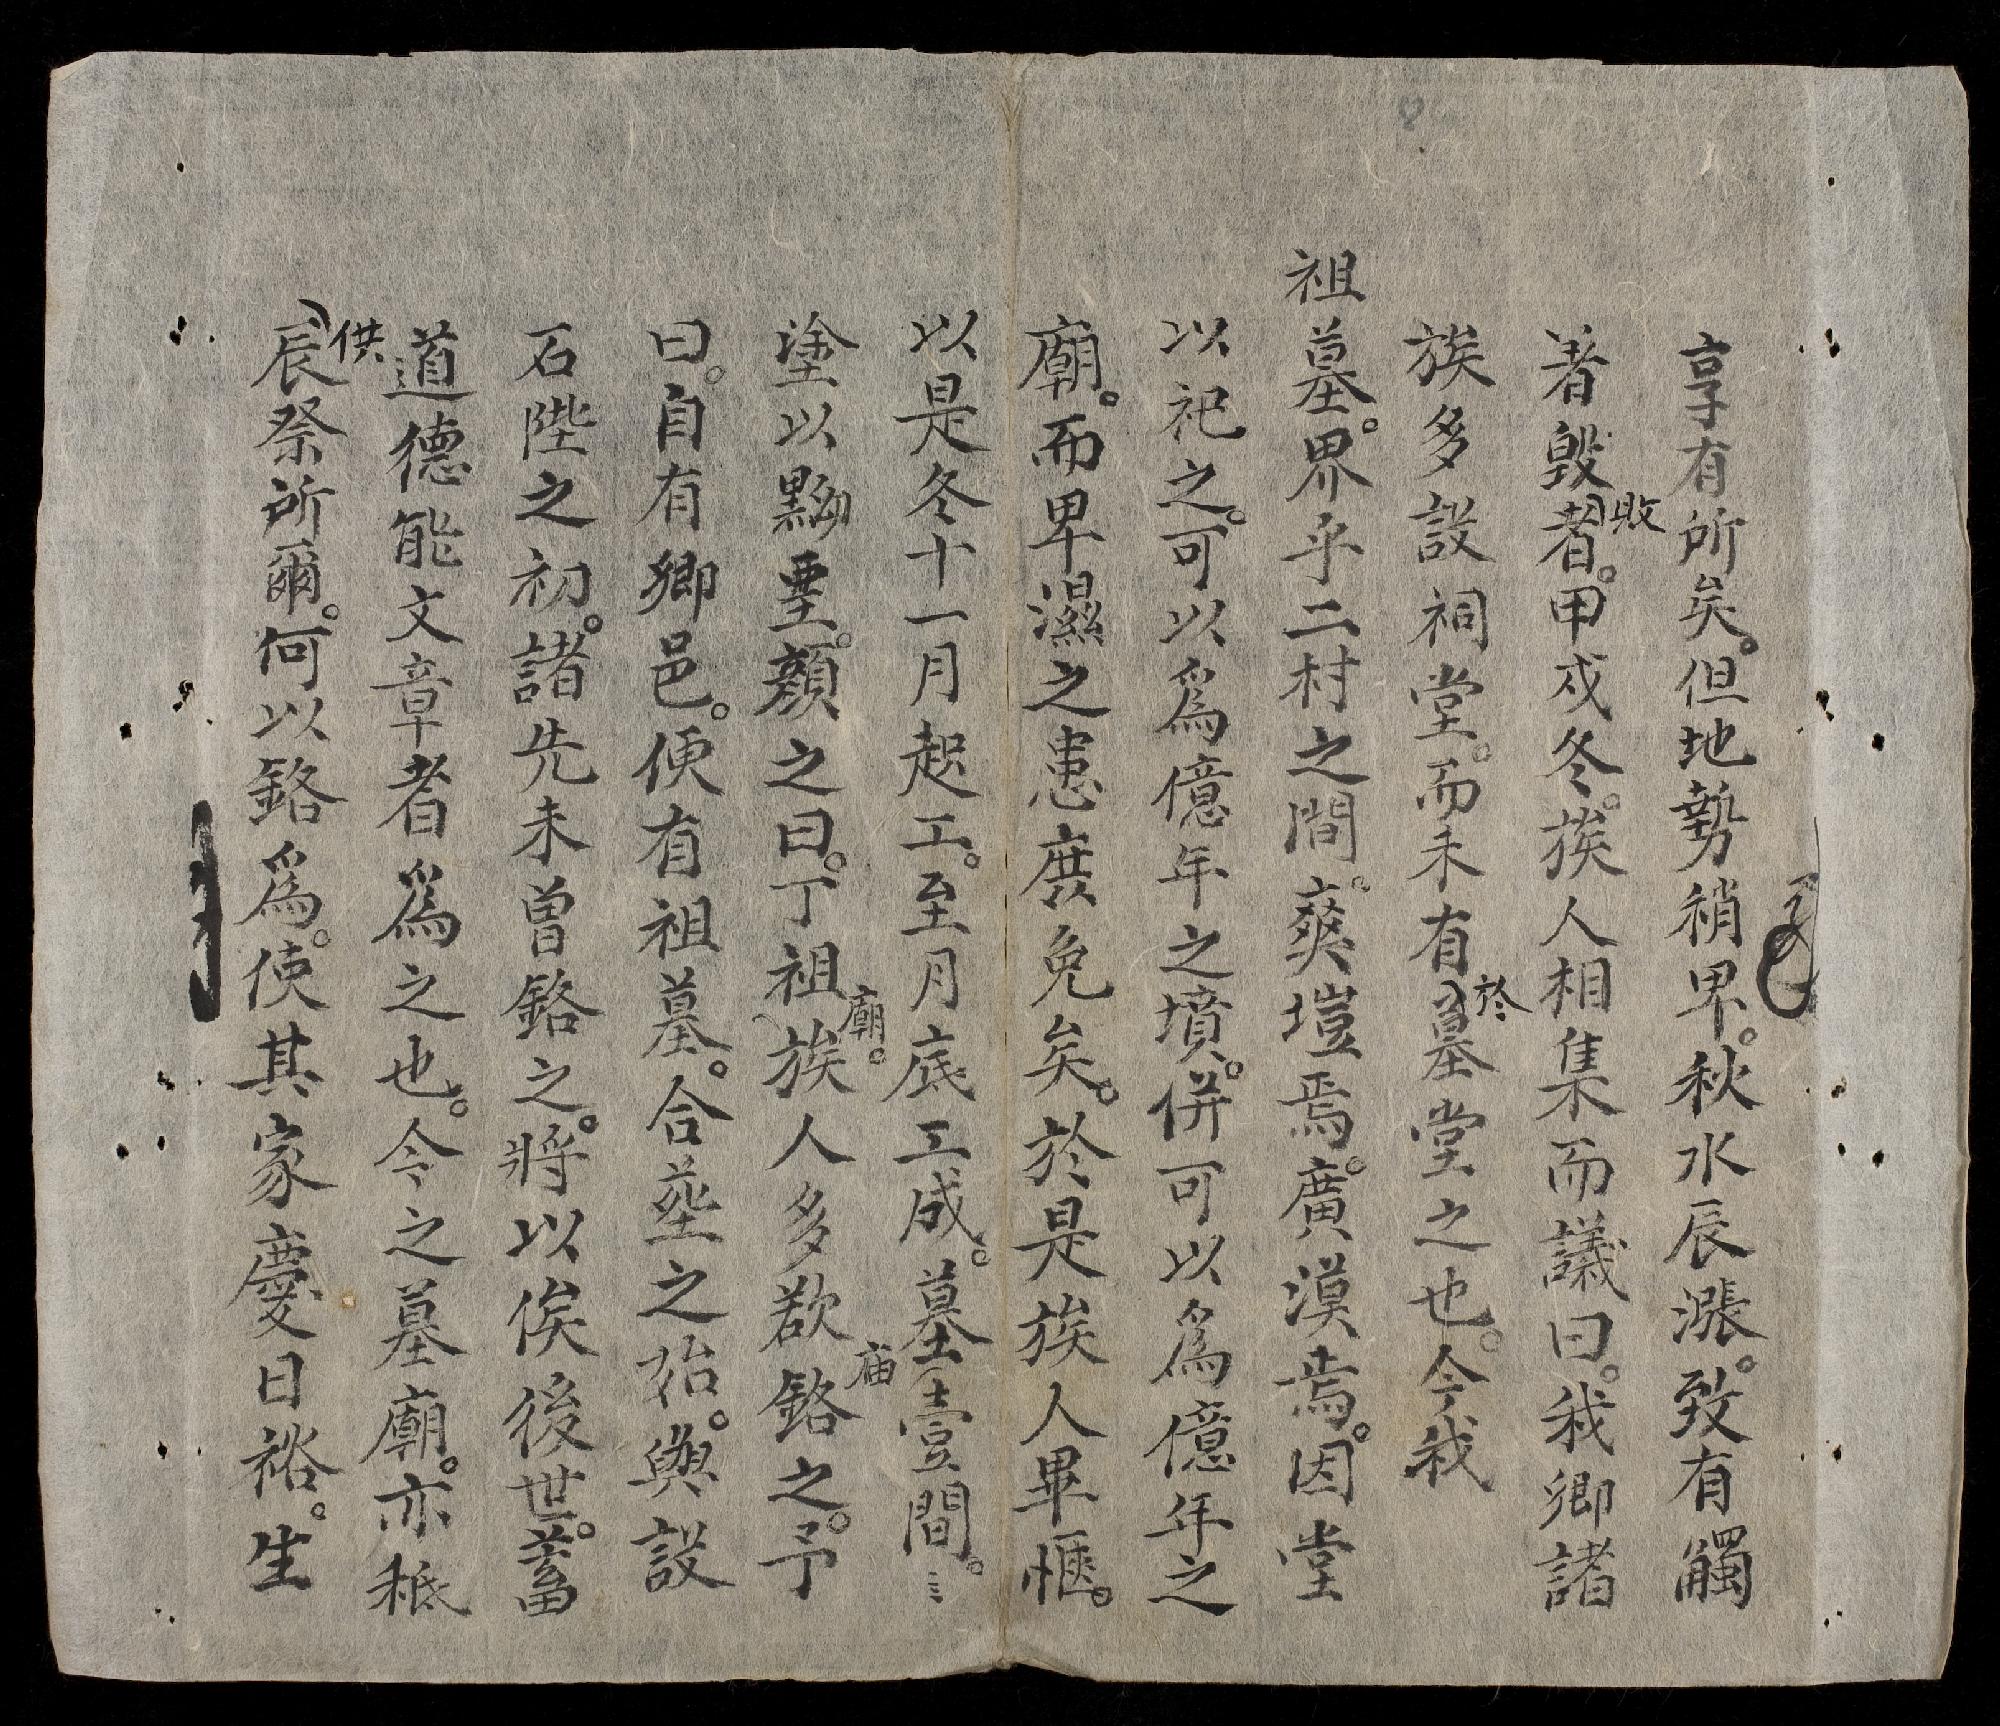 享有所矣。但地勢稍卑。秋水辰漲。致有觸
著毀者。甲戌冬。族人相集而議曰。我鄉諸
敗
族多設祠堂。而未有墓堂之也。今我
於
祖墓。界乎二村之間。爽塏焉。廣漠焉。因堂
以祀之。可以爲億年之墳。併可以爲億年之
廟。而卑濕之患庶免矣。於是族人畢愜。
以是冬十一月起工。至月底工成。墓壹間。
庙
塗以黝堊。顏之曰。丁祖族人多欲銘之。予
廟。
曰。自有鄉邑。便有祖墓。合塟之始。與設
石陛之初。諸先未曾銘之。將以俟後世。蓄
道德能文章者爲之也。今之墓廟。亦秪
供
辰祭所爾。何以銘爲。使其家慶日裕。生